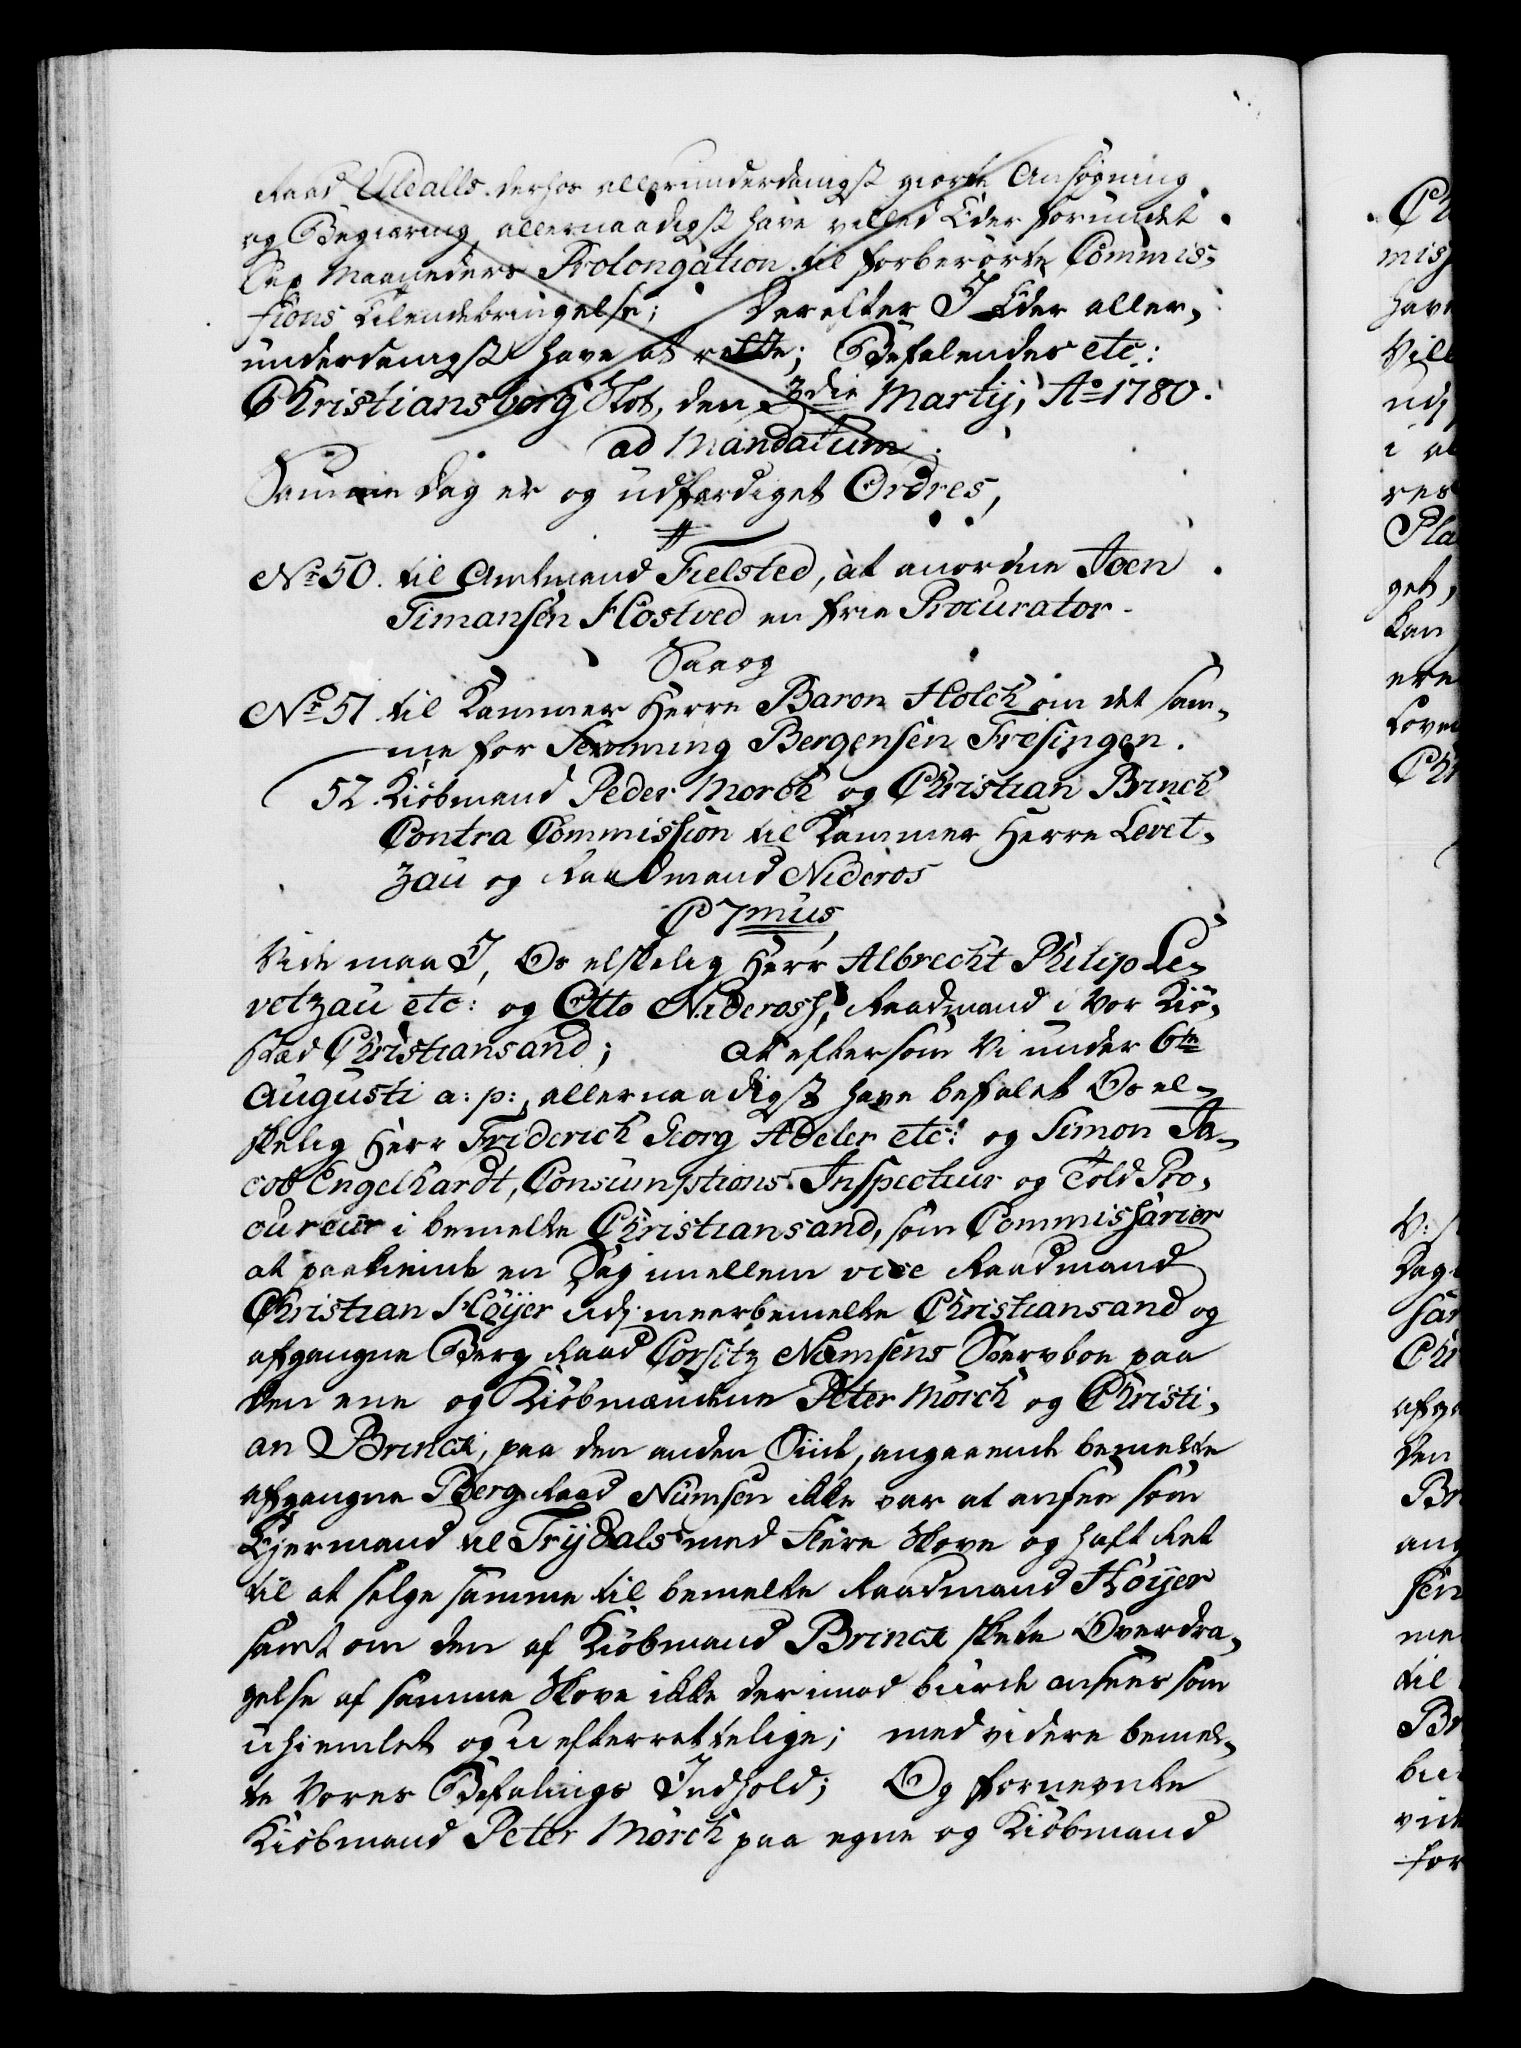 Raad Uldalls derhos allerunderdanigst giorte Ansøgning
og Begiæring, allernaadigst have villed Eder forundet
Sex Maaneders Prolongation til forberørte Commis-
sions Tilendebringelse; Derefter I Eder aller-
underdanigst have at rette; Befalendes etc:
Christiansborg Slot, den 3die Martij, Ao 1780.
ad Mandatum.
Samme Dag er og udfærdiget Ordres,
No 50. til Amtmand Fielsted, at anordne Joen
Timansen Hostved en frie Procurator.
Saa og
No 51. til Kammer Herre Baron Holck om det sam-
me for Bergensen Tresingen.
52. Kiöbmand Peder Morch og Christian Brinch
Contra Commission til Kammer Herre Levet-
zau og Raadmand Nideros
C 7mus,
Vide maa I, Os elskelig Herr Albrecht Philip Le-
vetzau etc: og Otto Niderosz, Raadmand i Vor Kiö-
stæd Christiansand; at eftersom Vi under 6te
Augusti a: p:, allernaadigst have befalet Os el-
skelig Herr Friderich Georg Adeler etc: og Simon Ja-
cob Engelhardt, Consumptions Inspecteur og Told Pro-
cureur i bemelte Christiansand, som Commissarier
at paakiende en Sag imellem vice Raadmand
Christian Höyer udj meerbemelte Christiansand og
afgangne Berg Raad Corfitz Numsens Stervboe paa
den ene og Kiöbmændene Peter Mörch og Christi-
an Brinck, paa den anden Siide, angaaende bemelte
afgangne Berg Raad Numsen ikke var at ansee som
Ejermand til Trydals med flere Skove og haft Ret
til at selge samme til bemelte Raadmand Höyer
samt om den af Kiöbmand Brinck skete Overdra-
gelse af samme Skove ikke derimod burde ansees som
uhiemlet og uefterrettelige; med videre bemel-
te Vores Befalings Indhold; Og fornevnte
Kiöbmand Peter Mörch paa egne og Kiöbmand